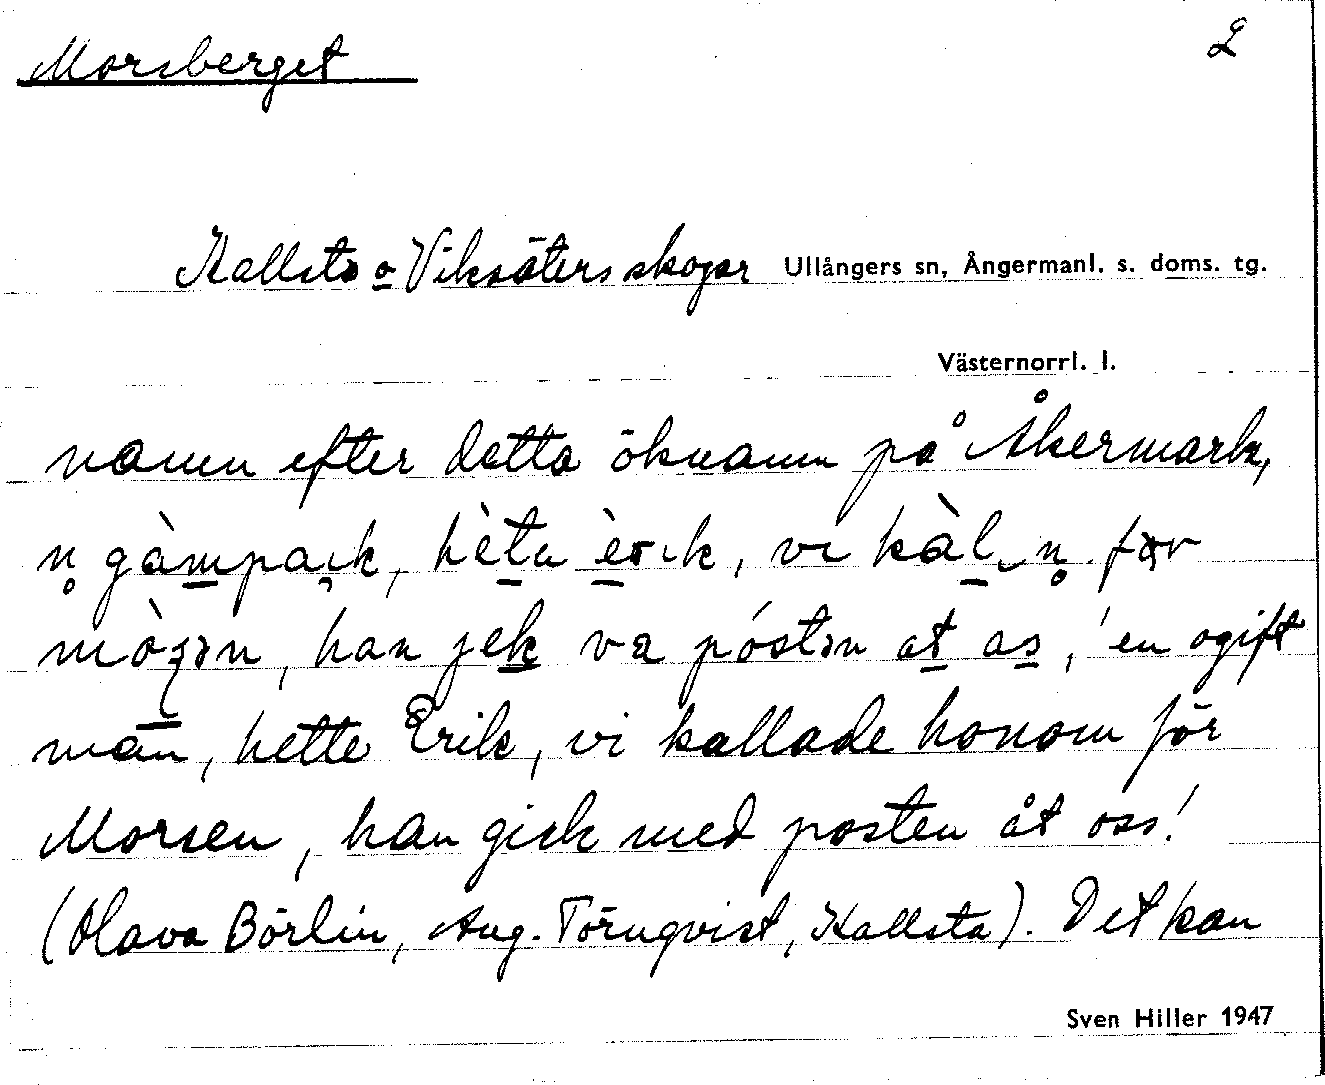 Morsberget 2
Kallsta o Viksäters skogar Ullångers sn, Ångermanl. s. doms. tg.
Västernorrl. l.
namn efter detta öknamn på Åkermark,
n̥ gàmpaɪk, hètɑ èrɪk, vi kàl n̥ fær
mòʂən, han jek va póstən at as, 'en ogift
man, hette Erik, vi kallade honom för
Morsen, han gick med posten åt oss!
(Olava Börlin, Aug. Törnqvist, Kallsta). Det kan
Sven Hiller 1947